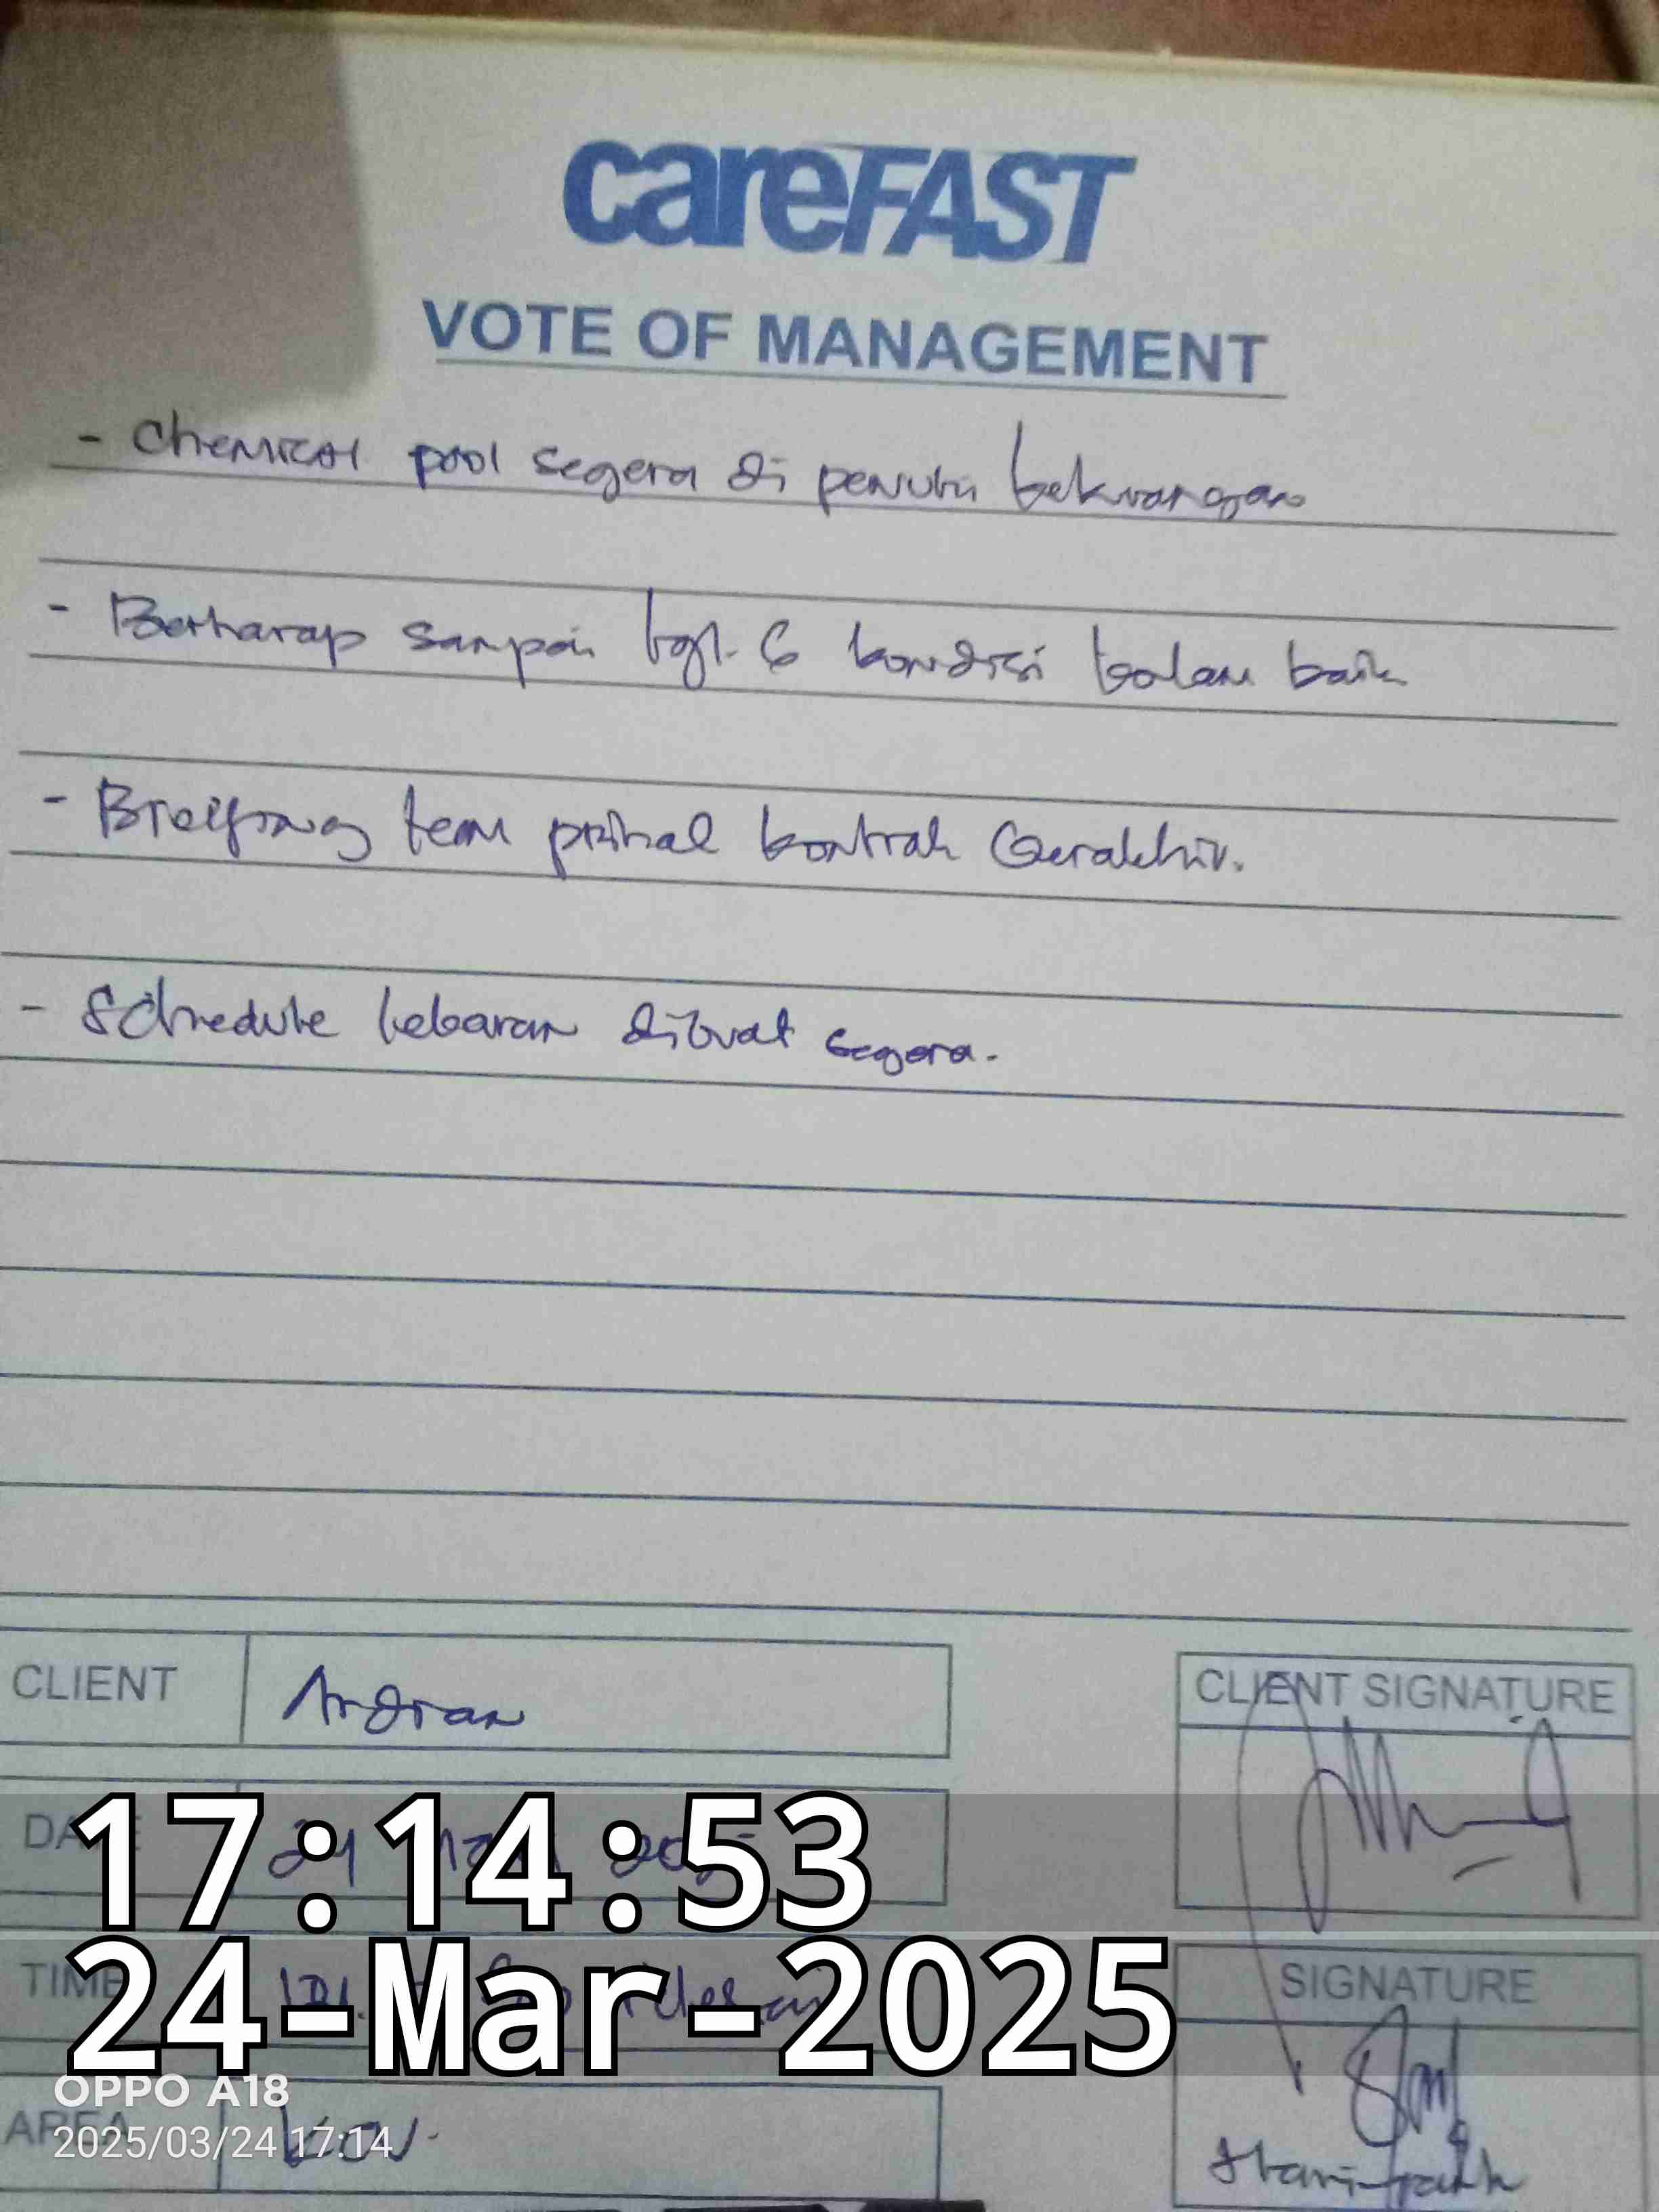 careFAST
VOTE OF MANAGEMENT
- Chemical pool segera di penuhi kekurangan
- Berharap sampai tgl. 6 kondisi kolam baik
- Breifing team prihal kontrak berakhir.
- Schedule lebaran dibuat segera.
CLIENT Ardian
CLIENT SIGNATURE
DATE 24 2025
17:14:53
TIME
SIGNATURE
24-Mar-2025
OPPO A18
AREA
2025/03/24 17:14